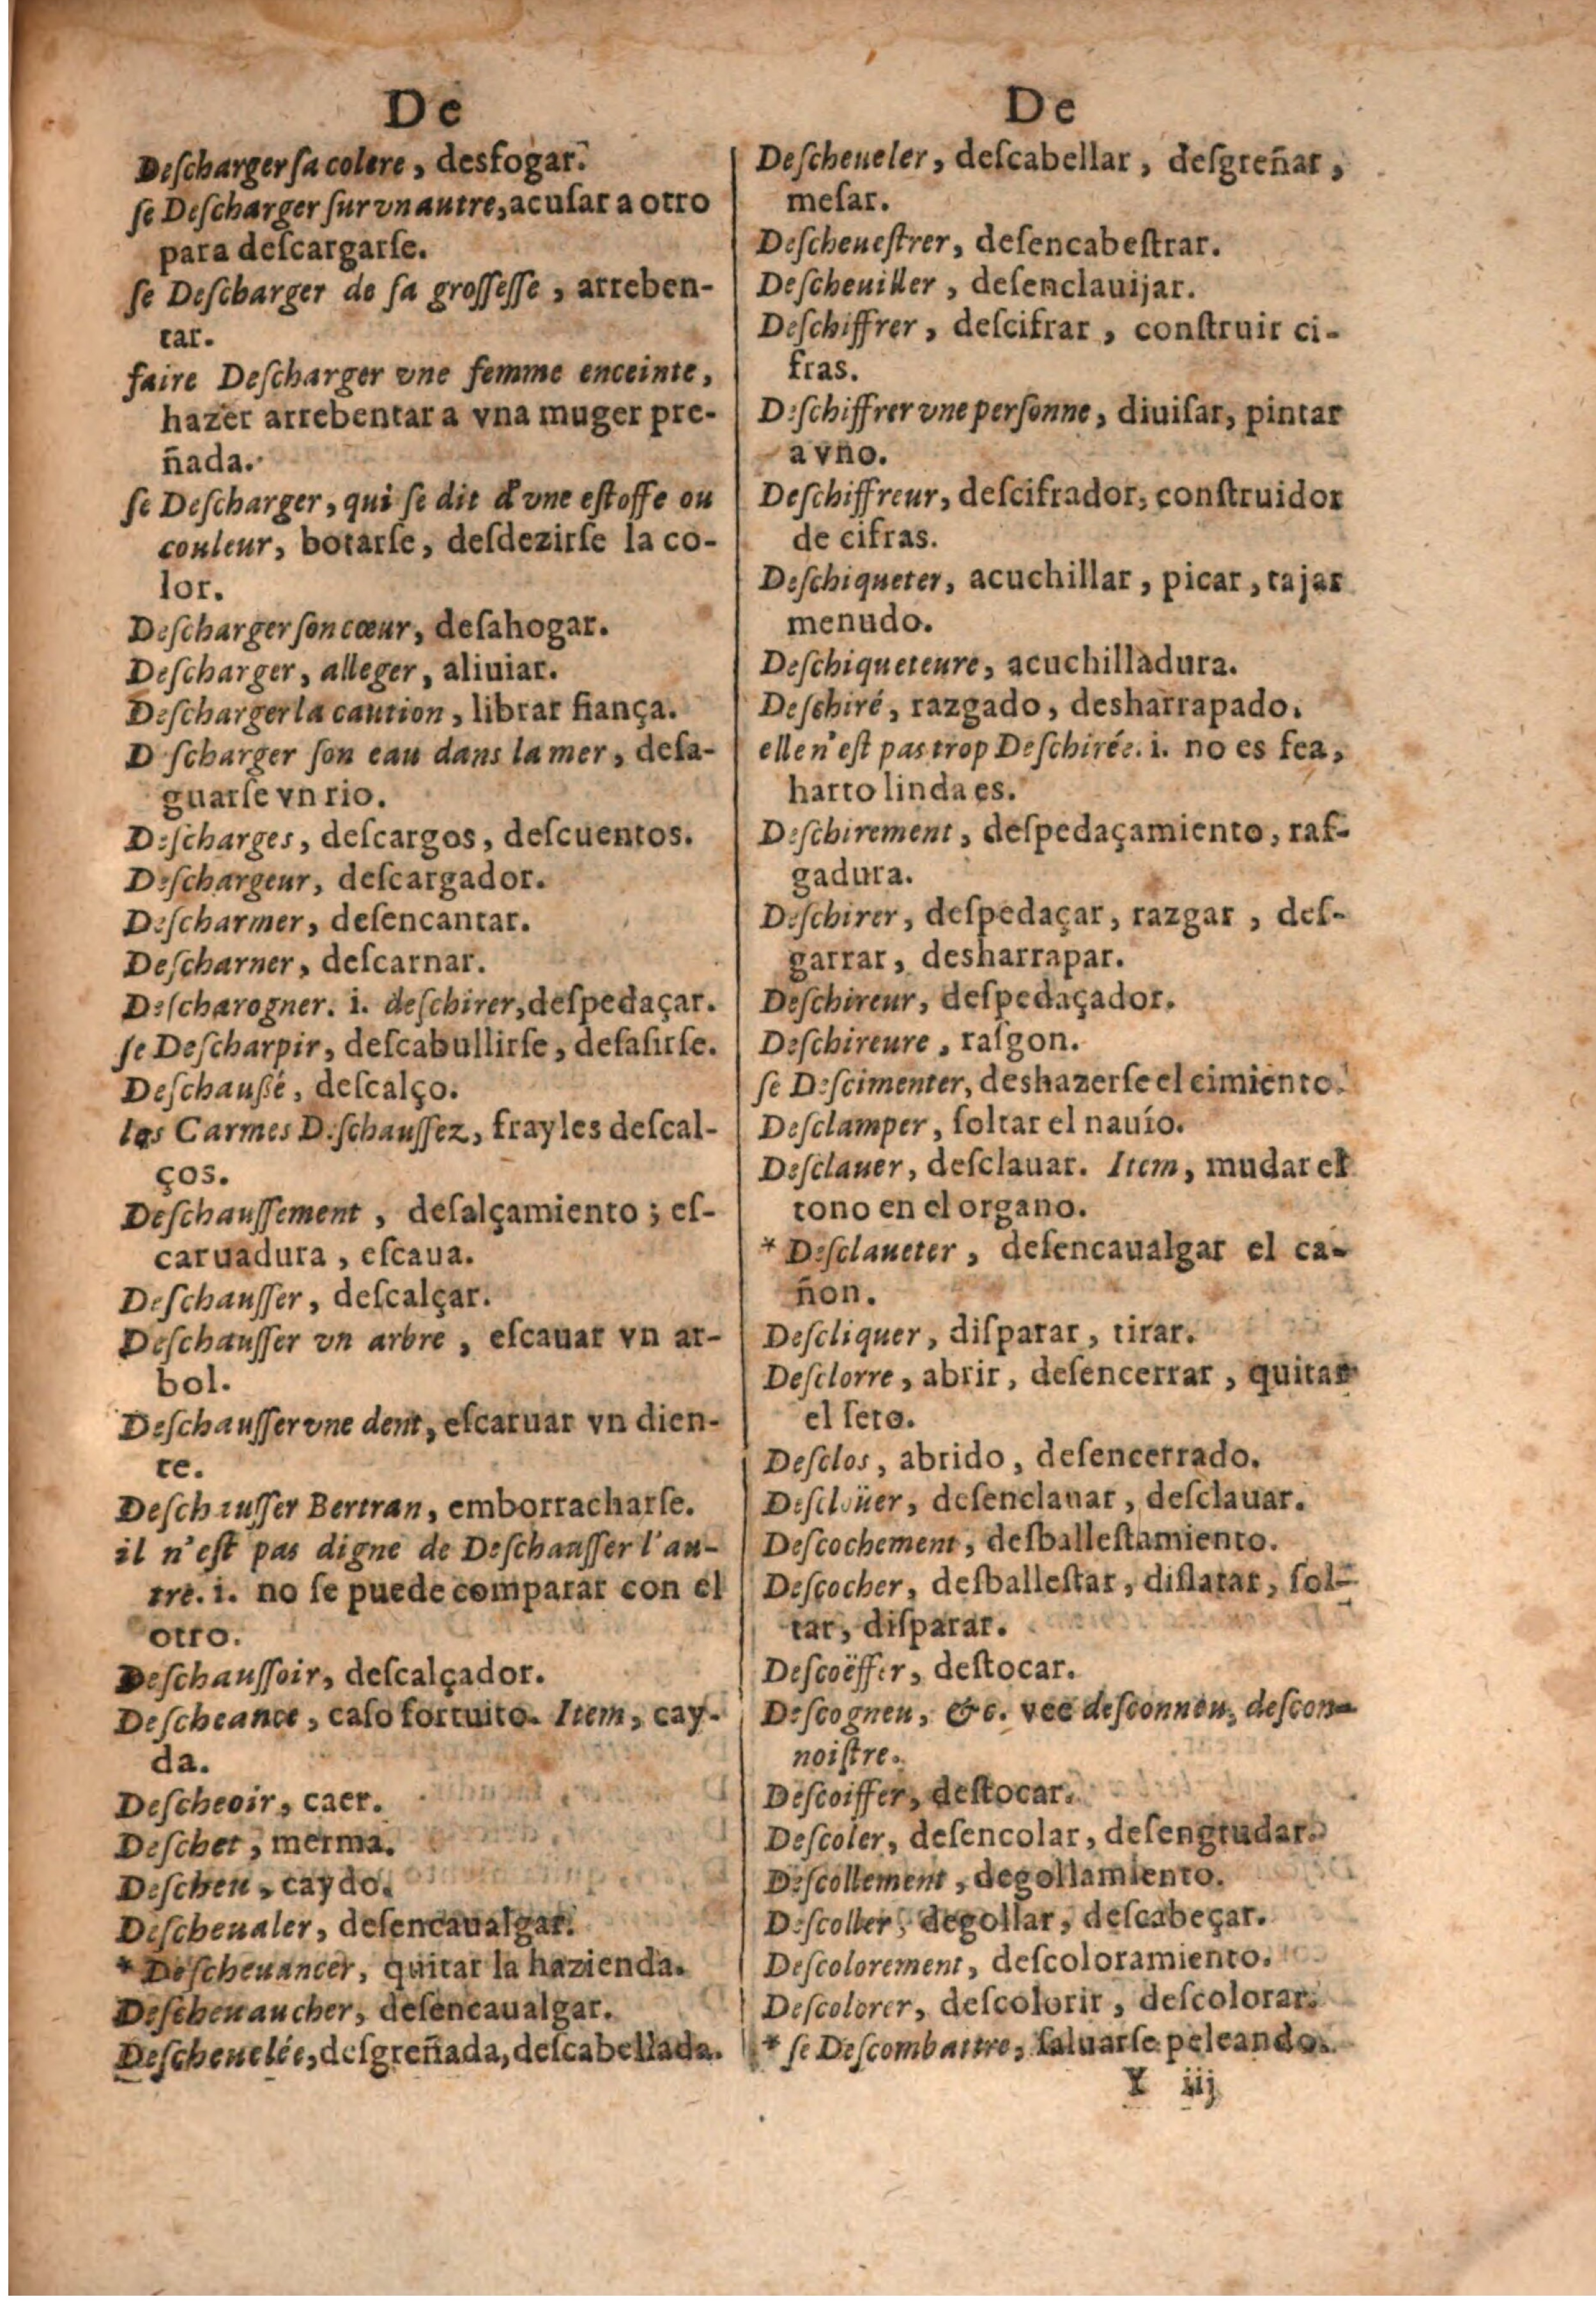 De
Deſcharger ſa colere, desfogar.
ſe Deſcharger ſur vn autre, acuſar a otro
para deſcargarſe.
ſe Deſcharger de ſa groſſeſſe, arreben-
tar.
faire Deſcharger vne femme enceinte,
hazer arrebentar a vna muger pre-
ñada.
ſe Deſcharger, qui ſe dit d'vne eſtoffe ou
couleur, botarſe, deſdezirſe la co-
lor.
Deſcharger ſon cœur, deſahogar.
Deſcharger, alleger, aliuiar.
Deſcharger la caution, librar fiança.
D ſcharger ſon eau dans la mer, deſa-
guarſe vn rio.
Deſcharges, deſcargos, deſcuentos.
Deſchargeur, deſcargador.
Deſcharmer, deſencantar.
Deſcharner, deſcarnar.
Deſcharogner. i. deſchirer, deſpedaçar.
ſe Deſcharpir, deſcabullirſe, deſaſirſe.
Deſchauſſé, deſcalço.
les Carmes Deſchauſſez, frayles deſcal-
ços.
Deſchauſſement, deſalçamiento; eſ-
caruadura, eſcaua.
Deſchauſſer, deſcalçar.
Deſchauſſer vn arbre, eſcauar vn ar-
bol.
Deſchauſſer vne dent, eſcaruar vn dien-
te.
Deſchauſſer Bertran, emborracharſe.
il n'eſt pas digne de Deſchauſſer l'au-
tre. i. no ſe puede comparar con el
otro.
Deſchauſſoir, deſcalçador.
Deſcheance, caſo fortuito. Item, cay-
da.
Deſcheoir, caer.
Deſchet, merma.
Deſcheu, caydo.
Deſcheualer, deſencaualgar.
* Deſcheuancer, quitar la hazienda.
Deſcheuaucher, deſencaualgar.
Deſcheuelée, deſgreñada, deſcabellada.
De
Deſcheueler, deſcabellar, deſgreñar,
meſar.
Deſcheueſtrer, deſencabeſtrar.
Deſcheuiller, deſenclauijar.
Deſchiffrer, deſcifrar, conſtruir ci-
fras.
Deſchiffrer vne perſonne, diuiſar, pintar
a vno.
Deſchiffreur, deſcifrador, conſtruidor
de cifras.
Deſchiqueter, acuchillar, picar, tajar
menudo.
Deſchiqueteure, acuchilladura.
Deſchiré, razgado, desharrapado.
elle n'eſt pas trop Deſchirée. i. no es fea,
harto linda es.
Deſchirement, deſpedaçamiento, raſ-
gadura.
Deſchirer, deſpedaçar, razgar, deſ-
garrar, desharrapar.
Deſchireur, deſpedaçador.
Deſchireure, raſgon.
ſe Deſcimenter, deshazerſe el cimiento.
Deſclamper, ſoltar el nauío.
Deſclauer, deſclauar. Item, mudar el
tono en el organo.
* Deſclaueter, deſencaualgar el ca-
ñon.
Deſcliquer, diſparar, tirar.
Deſclorre, abrir, deſencerrar, quitar
el ſeto.
Deſclos, abrido, deſencerrado.
Deſcloüer, deſenclauar, deſclauar.
Deſcochement, deſballeſtamiento.
Deſcocher, deſballeſtar, diſlatar, ſol-
tar, diſparar.
Deſcoëffer, deſtocar.
Deſcogneu, &c. vee deſconneu, deſcon-
noiſtre.
Deſcoiffer, deſtocar.
Deſcoler, deſencolar, deſengrudar.
Deſcollement, degollamiento.
Deſcoller, degollar, deſcabeçar.
Deſcolorement, deſcoloramiento.
Deſcolorer, deſcolorir, deſcolorar.
* ſe Deſcombattre, ſaluarſe peleando.
Y iij